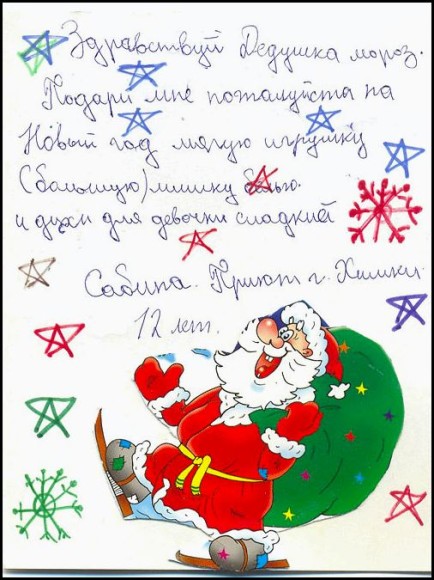 Здравствуй Дедушка мороз.
Подари мне пожалуйста на
Новый год мягкую игрушку
(большую) мишку белью.
и духи для девочки сладкий
Сабина. Приют г. Химки.
12 лет.